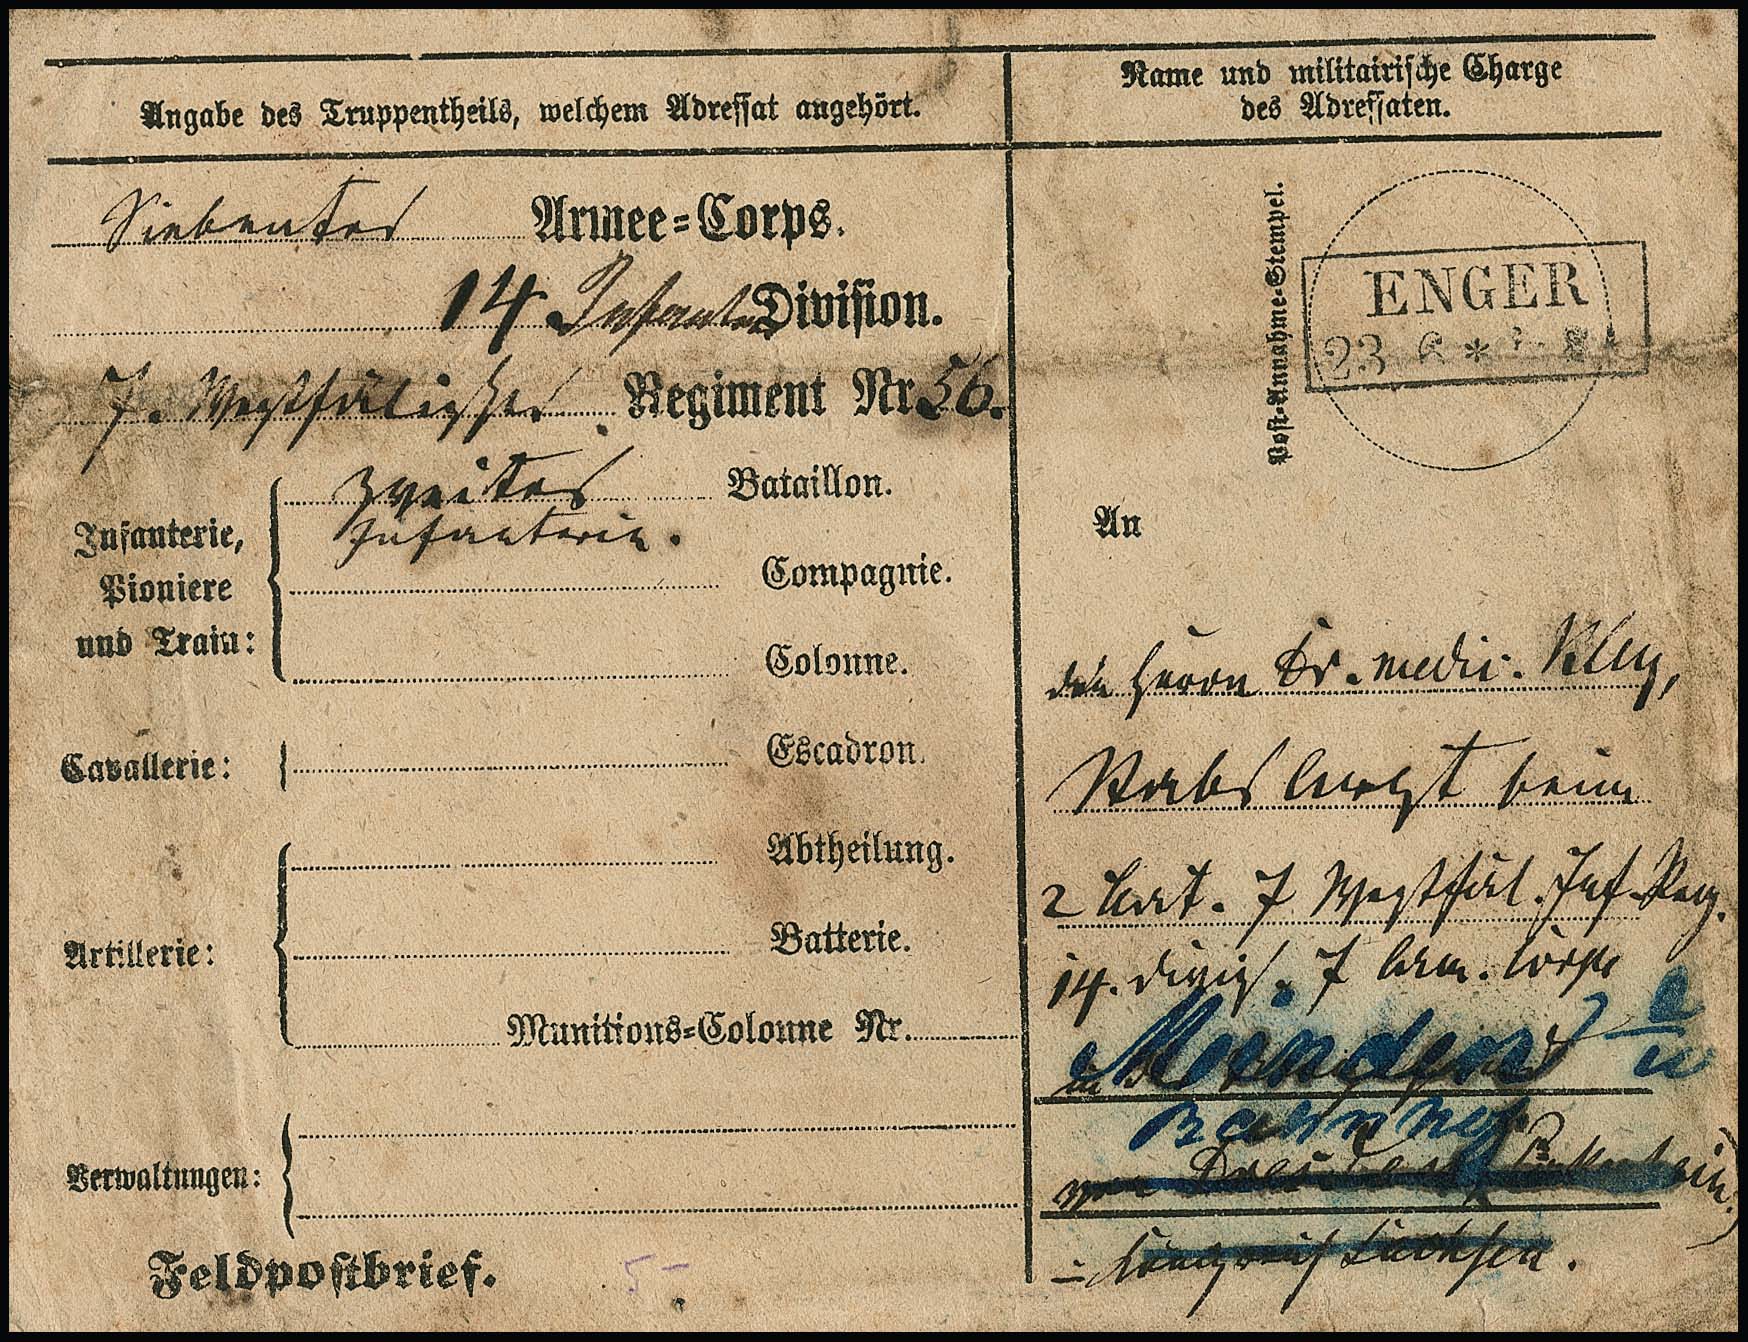 Angabe des Truppentheils, welchem Adressat angehört.
Name und militairische Charge
des Adressaten.
Siebentes Armee=Corps.
14. Infanterie Division.
7. Westfälisches Regiment Nr. 56.
Infanterie,
Pioniere
und Train:
zweites Bataillon.
Infanterie.
Compagnie.
Colonne.
Cavallerie:
Escadron.
Artillerie:
Abtheilung.
Batterie.
Munitions=Colonne Nr.
Verwaltungen:
Feldpostbrief.
5-
Post-Annahme-Stempel.
ENGER
23 6 *
An
den Herrn Dr. medic.
Stabs Arzt beim
2 Bat. 7 Westfäl. Inf. Reg.
14. Divis. 7 Arm. Corps
in Minden
Bahnhof
von Dresden
- Königreich Sachsen.